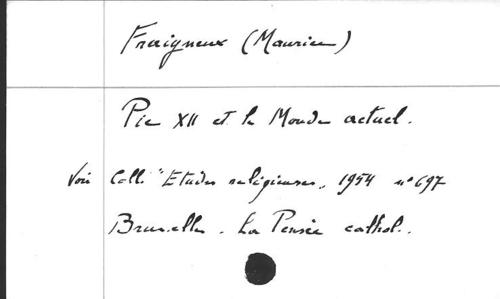 Fraigneux (Maurice)
Pie XII et le Monde actuel.
Voir Coll. "Etudes religieuses", 1954 n° 697
Bruxelles. La Pensée cathol..